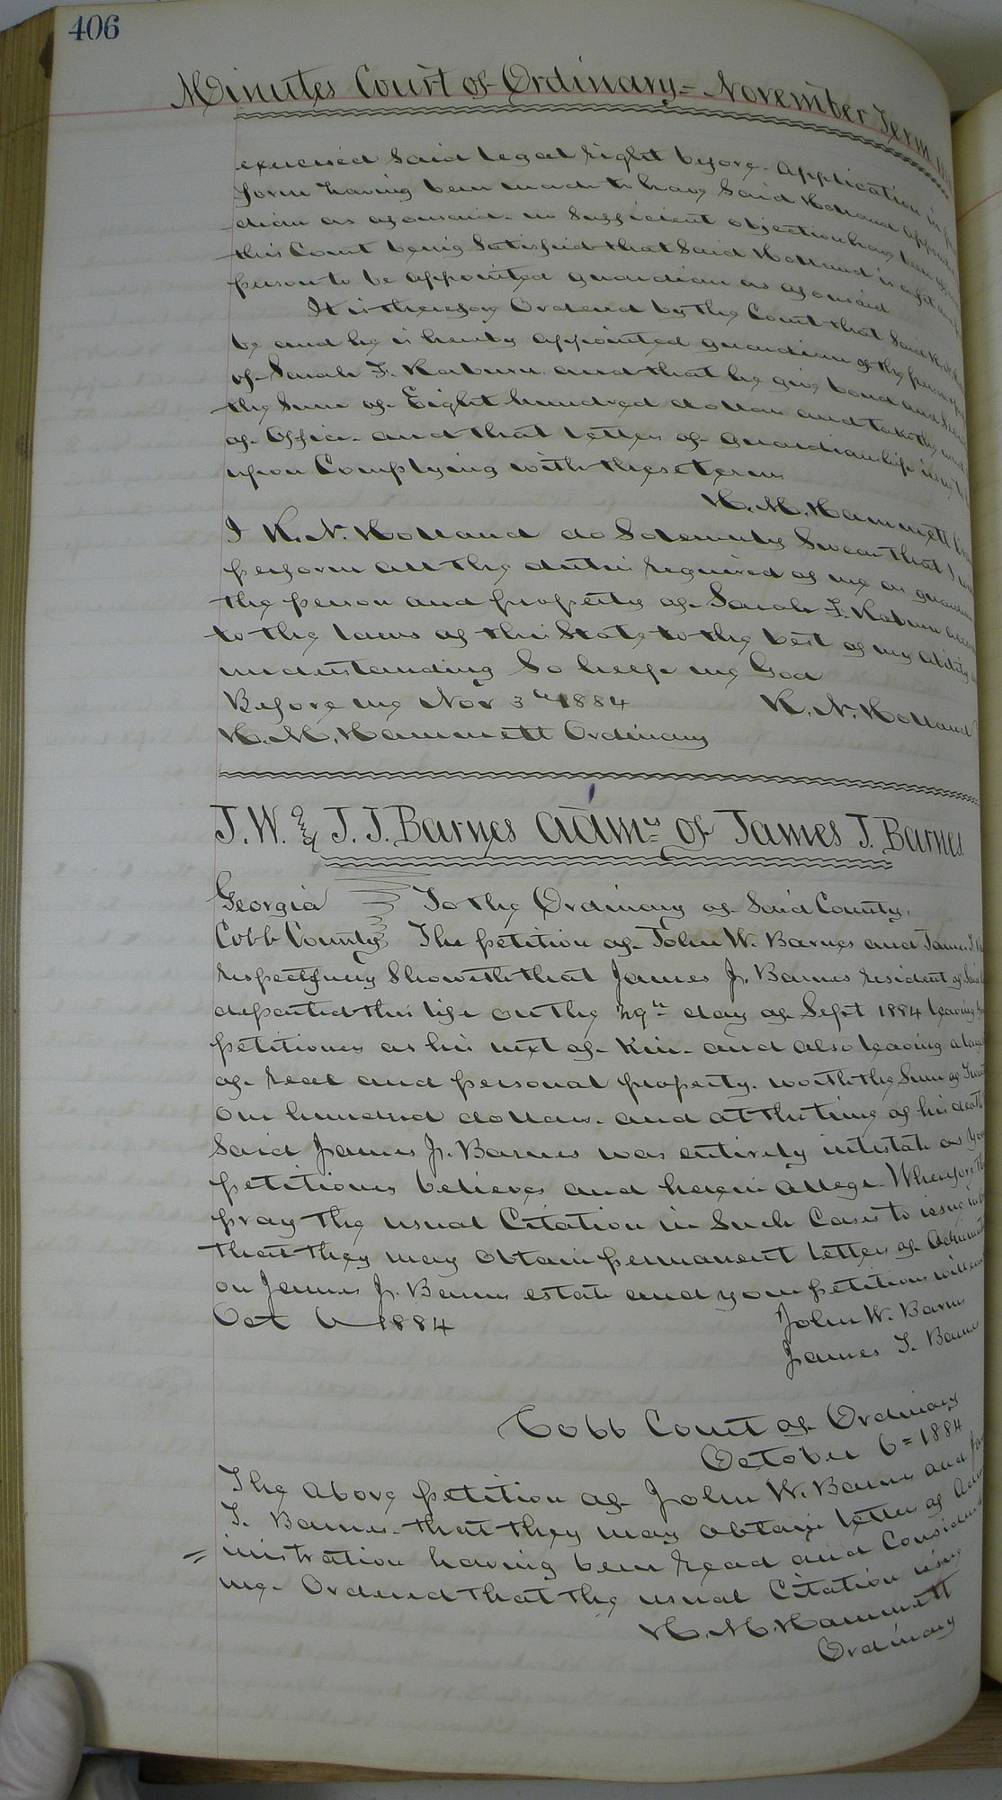 406
Minutes Court of Ordinary = November Term
exercised said legal right before. Application in
form having been made to have said Holland appointed
dian as aforesaid. no sufficient objection having been
this Court being satisfied that said Holland is a fit and
person to be appointed guardian as aforesaid
It is therefore Ordered by the Court that said
be and he is hereby appointed guardian of the person
of Sarah F. Raburn and that he give bond and
the sum of Eight hundred dollars and take the
of Office. and that letters of guardianship issue
upon Complying with these terms
H. M. Hammett
I R. N. Holland do Solemnly Swear that I will
perform all the duties required of me as guardian
the person and property of Sarah F. Raburn
to the laws of this State to the best of my ability
understanding So help me God
Before me Nov 3rd 1884 R. N. Holland
H. M. Hammett Ordinary
J. W. & J. T. Barnes adms of James J. Barnes
Georgia To the Ordinary of Said County,
Cobb County The petition of John W. Barnes and James T.
respectfully Showeth that James J. Barnes resident of Said
departed this life on the 29th day of Sept 1884 leaving
petitioners as his next of Kin. and also leaving a
of real and personal property. worth the Sum of
One hundred dollars. and at the time of his death
Said James J. Barnes was entirely intestate as your
petitioners believes and herein allege. Wherefore they
pray the usual Citation in Such Cases to issue
that they may obtain permanent letters of
on James J. Barnes estate and your petitioners will
Oct 6 1884 John W. Barnes
James T. Barnes
Cobb Court of Ordinary
October 6 = 1884
The above petition of John W. Barnes and
T. Barnes. that they may obtain letters of Adm
= inistration having been read and Considered
me. Ordered that the usual Citation issue
H. M. Hammett
Ordinary